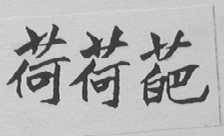 荷荷葩